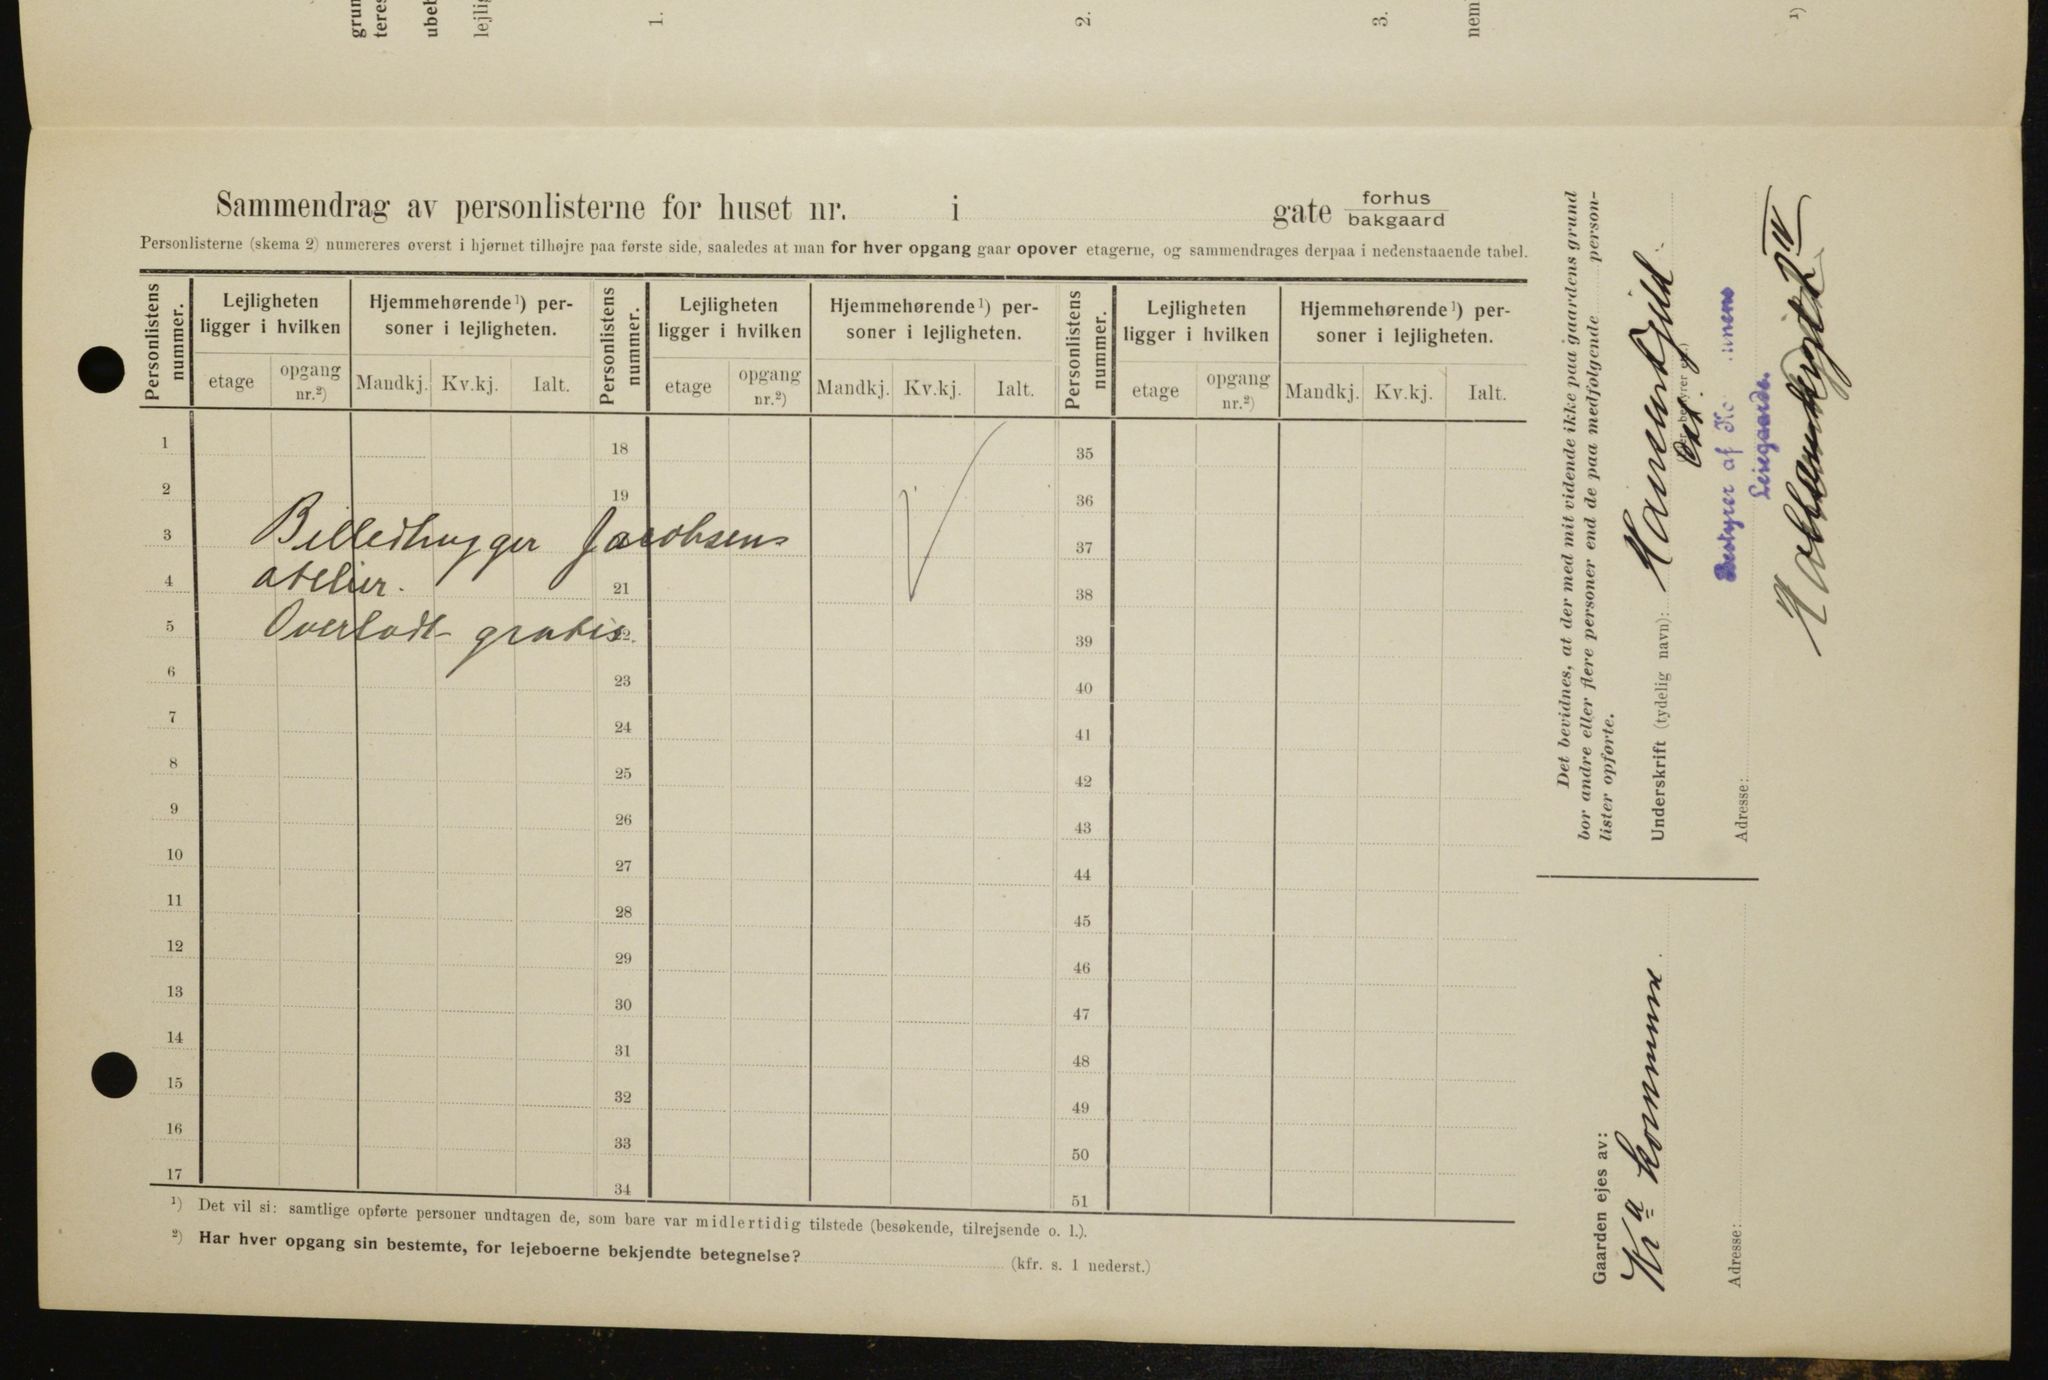 grun
teres
ubeb
lejlig
1.
2.
3.
nem
1)
Sammendrag av personlisterne for huset nr. i gate forhus
bakgaard
Personlisterne (skema 2) numereres øverst i hjørnet tilhøjre paa første side, saaledes at man for hver opgang gaar opover etagerne, og sammendrages derpaa i nedenstaaende tabel.
Personlistens nummer. Lejligheten ligger i hvilken Hjemmehørende¹) personer i lejligheten. Personlistens nummer. Lejligheten ligger i hvilken Hjemmehørende¹) personer i lejligheten. Personlistens nummer. Lejligheten ligger i hvilken Hjemmehørende¹) personer i lejligheten.
etage opgang nr.²) Mandkj. Kv.kj. Ialt. etage opgang nr.²) Mandkj. Kv.kj. Ialt. etage opgang nr.²) Mandkj. Kv.kj. Ialt.
1 18 35
2 19 36
3 Billedhugger Jacobsens 37
4 atelier. 21 38
5 Overladt gratis 22. 39
6 23 40
7 24 41
8 25 42
9 26 43
10 27 44
11 28 45
12 29 46
13 30 47
14 31 48
15 32 49
16 33 50
17 34 51
¹) Det vil si: samtlige opførte personer undtagen de, som bare var midlertidig tilstede (besøkende, tilrejsende o. l.).
²) Har hver opgang sin bestemte, for lejeboerne bekjendte betegnelse? (kfr. s. 1 nederst.)
Det bevidnes, at der med mit vidende ikke paa gaardens grund
bor andre eller flere personer end de paa medfølgende person-
lister opførte.
Underskrift (tydelig navn):
Bestyrer af
Leiegaarde.
Adresse:
Gaarden ejes av:
Kra kommune.
Adresse: